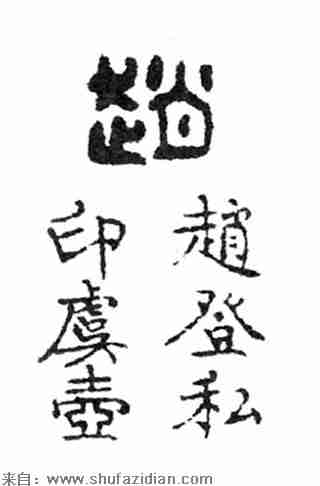 趙
趙登私
印虞壺
来自：www.shufazidian.com